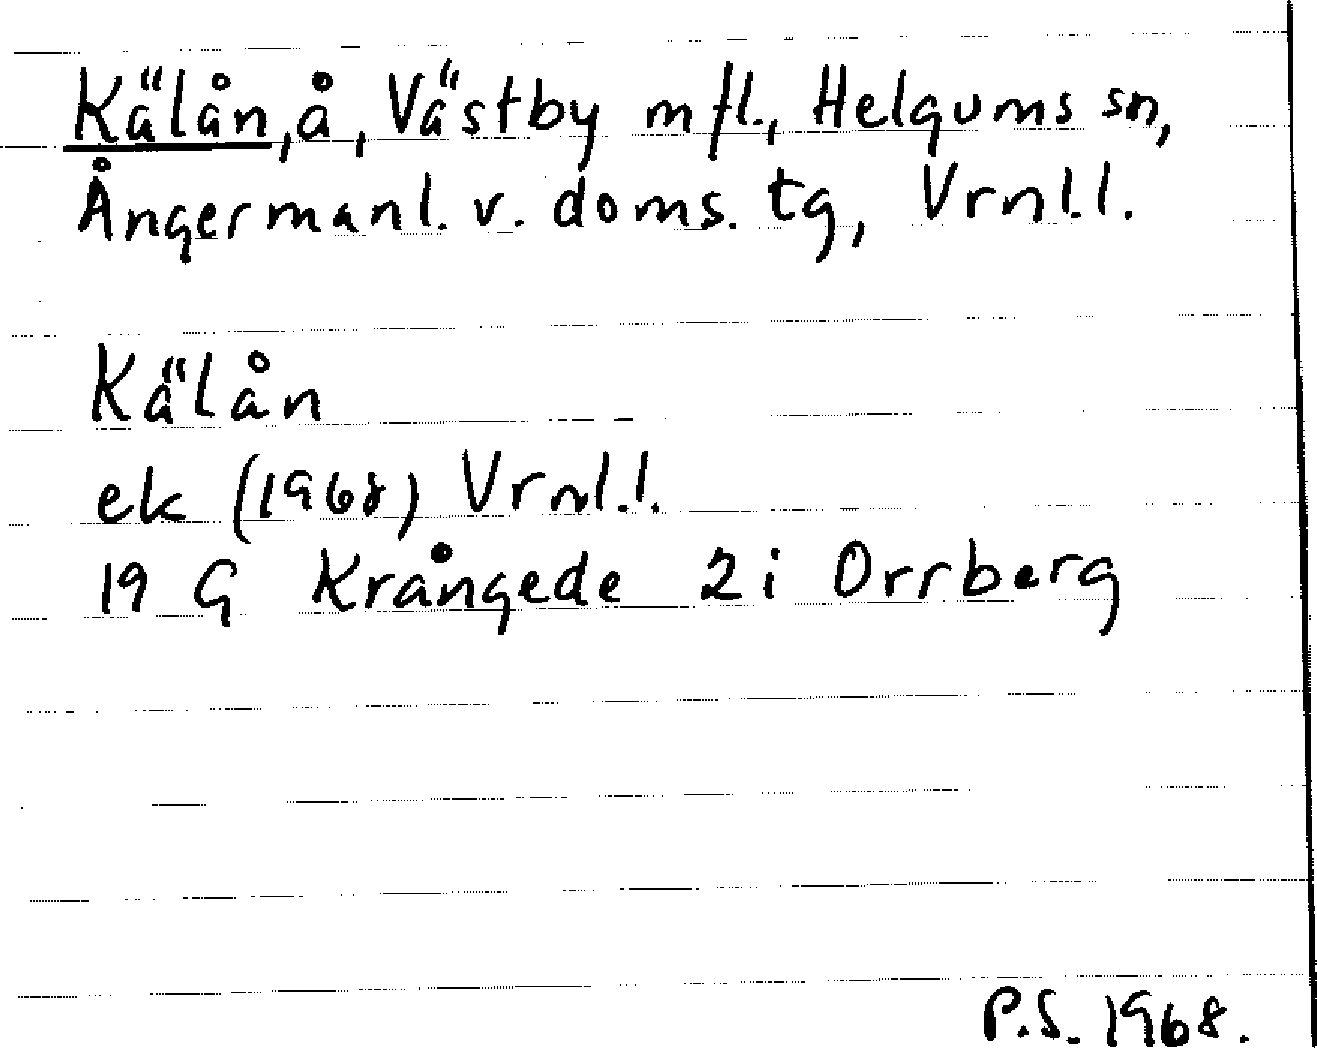 Kälån, å, Västby mfl., Helgums sn,
Ångermanl. v. doms. tg, Vrnl.l.
Kälån
ek (1968) Vrnl.l.
19 G Krångede 2 i Orrberg
P.S. 1968.